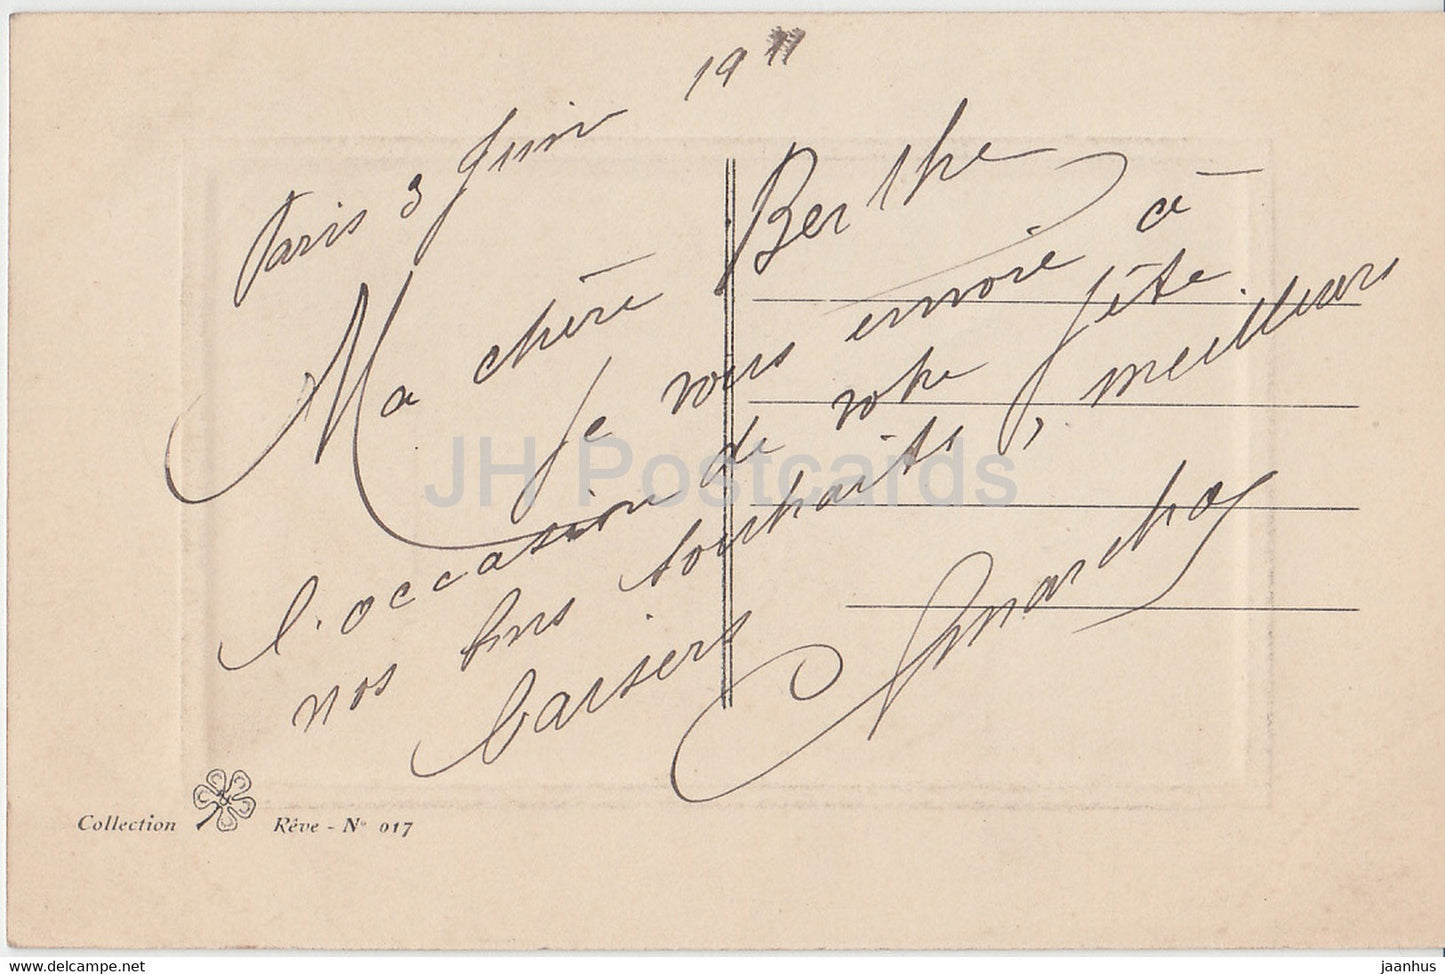 Paris 3 Juin 1911
Ma chère Berthe
Je vous envoie à
l'occasion de votre fête.
nos bons souhaits, meilleurs
baisers
JH Postcards
Collection Rêve - N° 017
www.delcampe.net
jaanhus